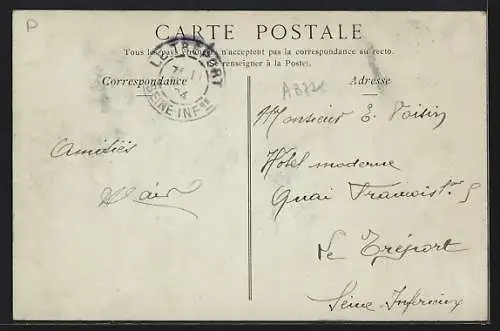 D
CARTE POSTALE
Tous les pays étrangers n'acceptent pas la correspondance au recto.
renseigner à la Poste).
Correspondance
Adresse
LE TREPORT
SEINE INFRE
Monsieur E. Voisin
Hôtel moderne
Quai François 1er 5
Le Tréport
Seine Inferieure
Amitiés